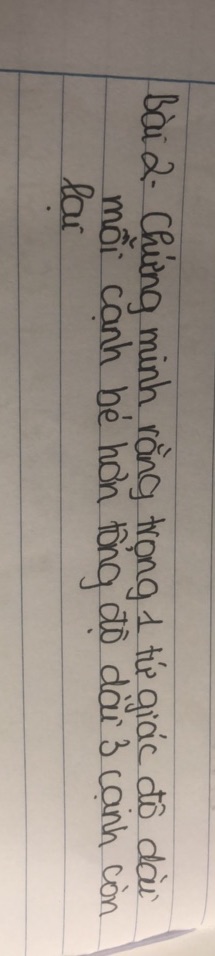 Bài 2. Chứng minh rằng trong 1 tứ giác độ dài
mỗi cạnh bé hơn tổng độ dài 3 cạnh còn
lại